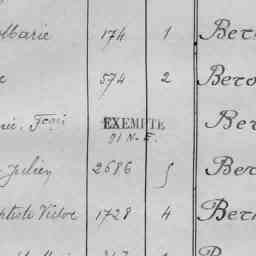 Marie 174 1 Ber
e 574 2 Bero
EXEMPTE Ber
91 N-E.
Julien 2686 5 Ber
ptiste Victor 1728 4 Ber